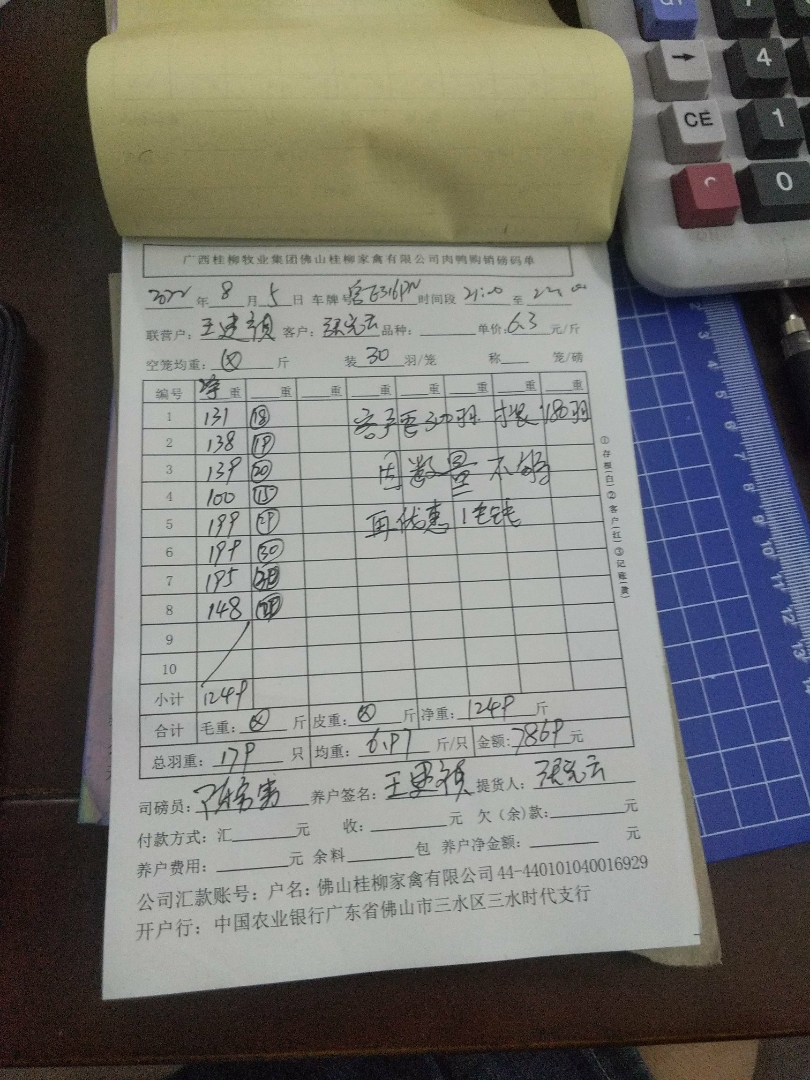 CE
4
1
0
广西桂柳牧业集团佛山桂柳家禽有限公司肉鸭购销磅码单
2022年 8 月 5 日 车牌号 时间段 21:00 至
联营户: 客户: 品种: 单价: 6.3 元/斤
空笼均重: 斤 装 30 羽/笼 称 笼/磅
编号 净重 重 重 重 重 重 重 重
1 131 18 客户要 羽 才装 180羽
2 138 19
3 139 20 因数量不够
4 100 15
5 199 29 再优惠1毛钱
6 199 30
7 195
8 148
9
10
小计 1249
合计 毛重: 斤 皮重: 斤 净重: 1249 斤
总羽重: 179 只 均重: 6.97 斤/只 金额: 7869 元
司磅员: 养户签名: 提货人:
付款方式: 汇 元 收: 元 欠(余)款: 元
养户费用: 元 余料 包 养户净金额: 元
公司汇款账号: 户名: 佛山桂柳家禽有限公司 44-440101040016929
开户行: 中国农业银行广东省佛山市三水区三水时代支行
①存根(白)②客户(红)③记账(黄)
7
8
9
10
11
12
13